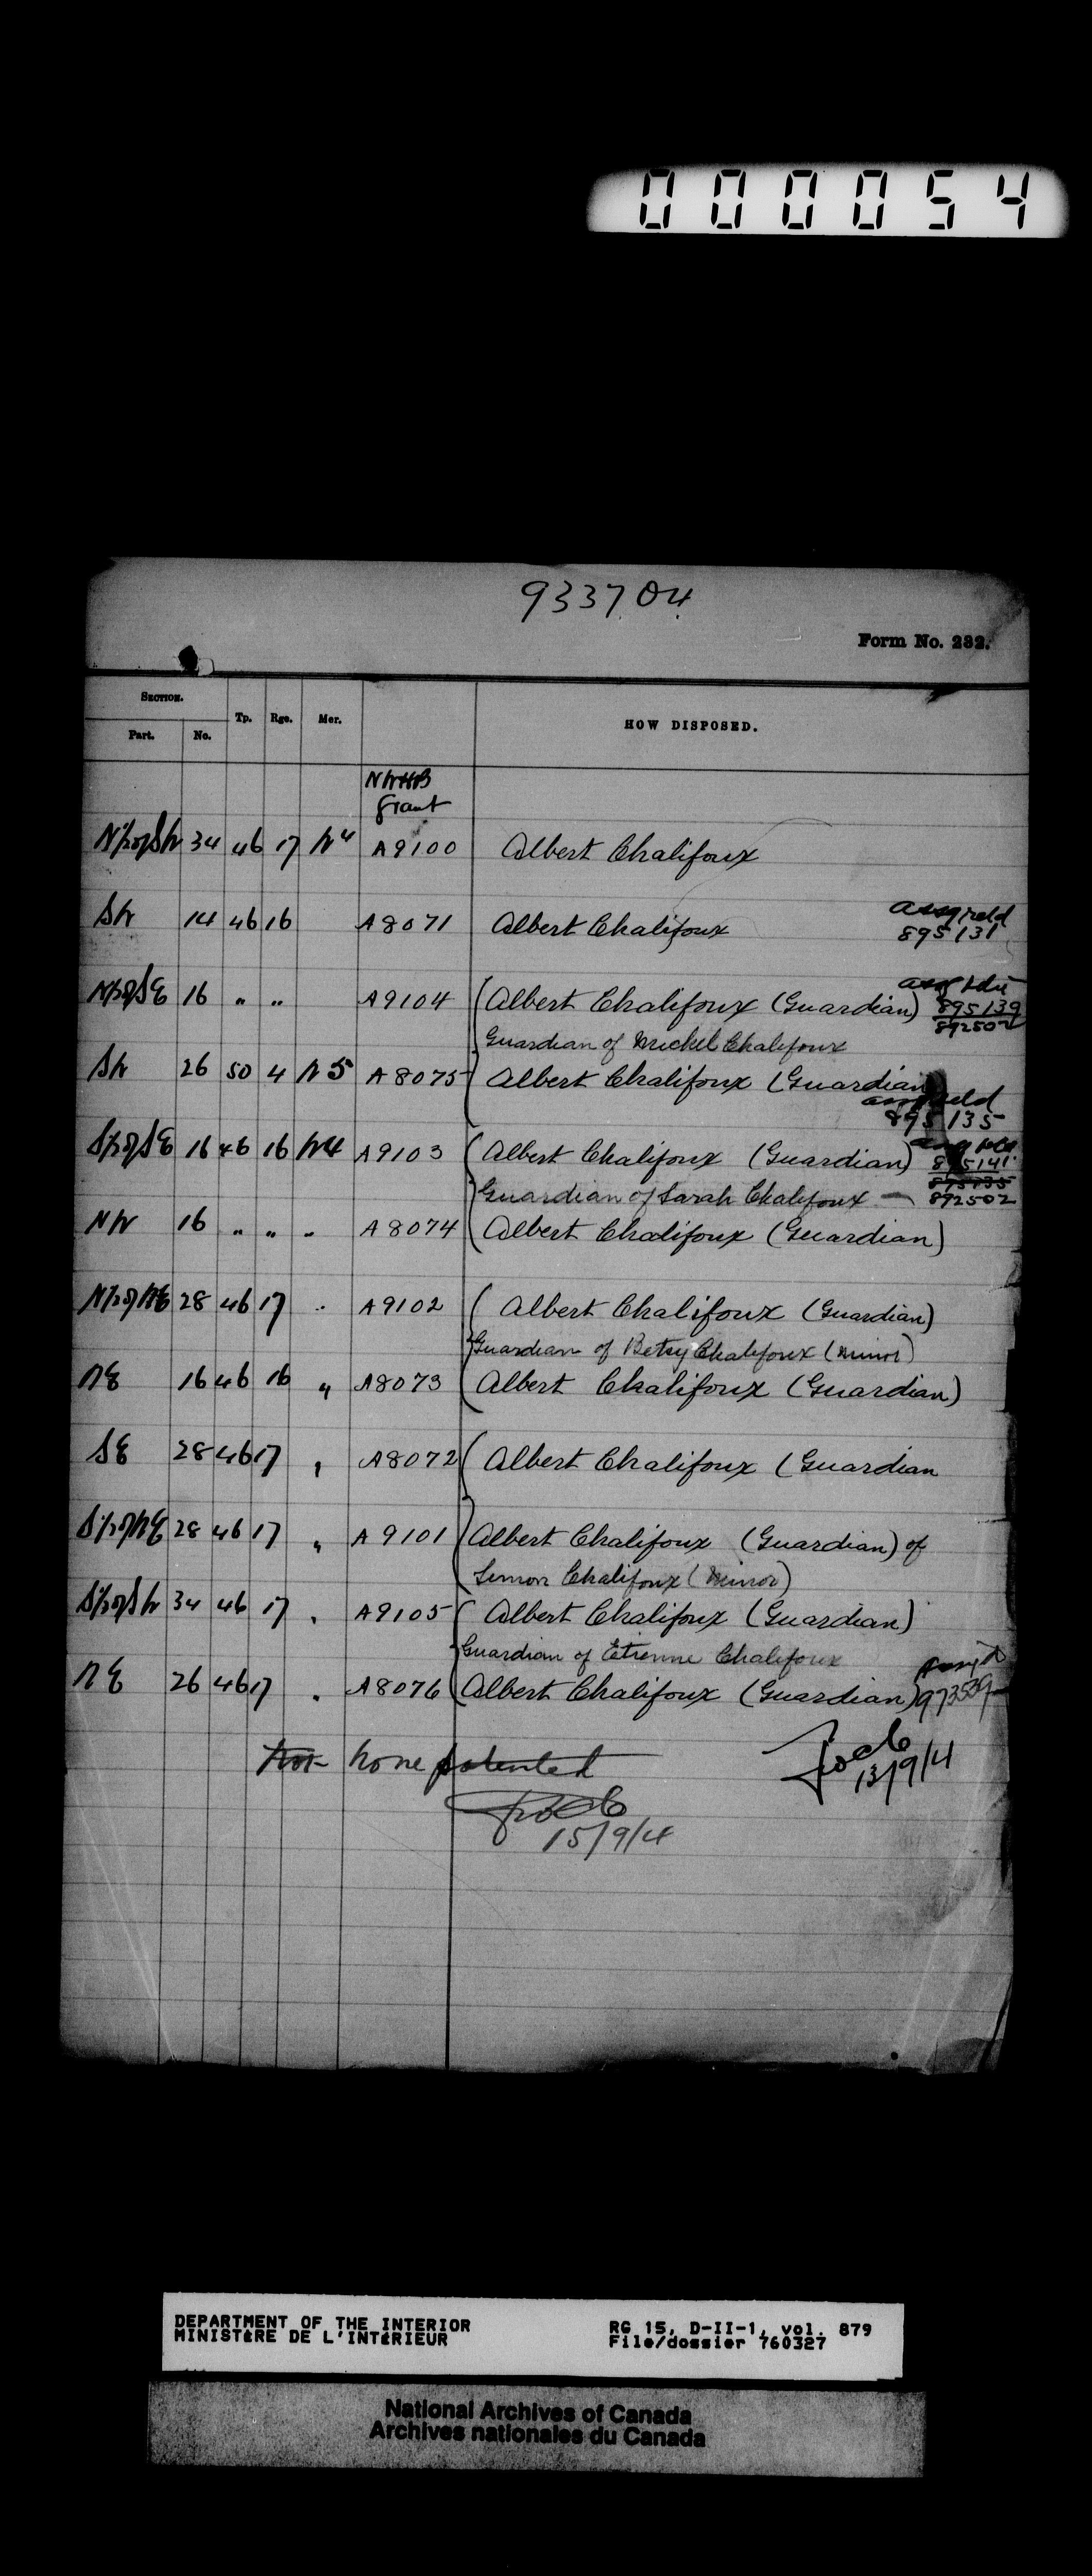 000054
933704
Form No. 232.
SECTION. Tp. Rge. Mer. HOW DISPOSED.
Part. No.
NWHB
Grant
N½ of SW 34 46 17 W4 A9100 Albert Chalifoux
SW 14 46 16 A8071 Albert Chalifoux
895131
N½ of SE 16 " " A9104 (Albert Chalifoux (Guardian) 895139
892502
Guardian of Mickel Chalifoux
SW 26 50 4 W5 A8075 Albert Chalifoux (Guardian)
895135
S½ of SE 16 46 16 W4 A9103 (Albert Chalifoux (Guardian) 895141
895735
Guardian of Sarah Chalifoux — 892502
NW 16 " " " A8074 (Albert Chalifoux (Guardian)
N½ of NE 28 46 17 " A9102 (Albert Chalifoux (Guardian)
Guardian of Betsy Chalifoux (Minor)
NE 16 46 16 " A8073 (Albert Chalifoux (Guardian)
SE 28 46 17 " A8072 (Albert Chalifoux (Guardian
S½ of NE 28 46 17 " A9101 Albert Chalifoux (Guardian) of
Simon Chalifoux (Minor)
S½ of SW 34 46 17 " A9105 (Albert Chalifoux (Guardian)
Guardian of Etienne Chalifoux
NE 26 46 17 " A8076 (Albert Chalifoux (Guardian) 973539
Not None patented
13/9/4
15/9/4
DEPARTMENT OF THE INTERIOR RG 15, D-II-1, vol. 879
MINISTÈRE DE L'INTÉRIEUR File/dossier 760327
National Archives of Canada
Archives nationales du Canada